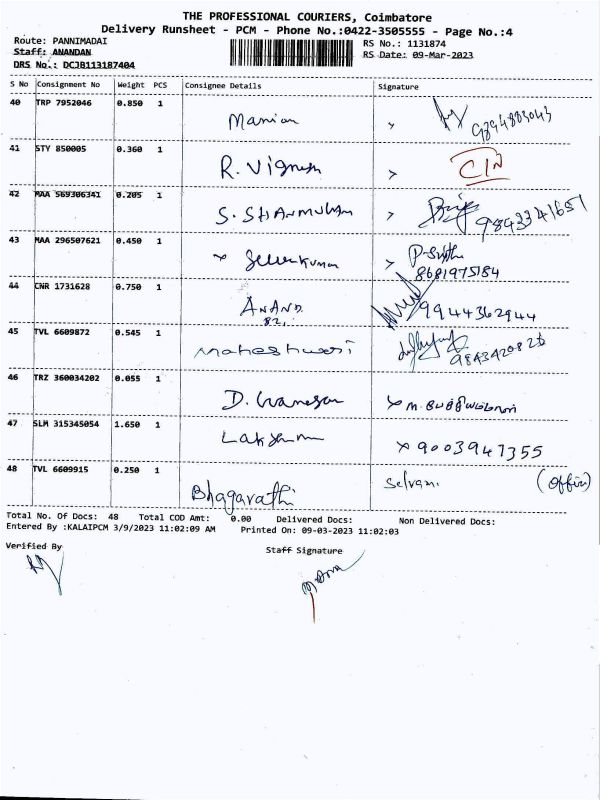 THE PROFESSIONAL COURIERS, Coimbatore
Delivery Runsheet - PCM - Phone No.:0422-3505555 - Page No.:4
Route: PANNIMADAI
RS No.: 1131874
Staff: ANANDAN
RS Date: 09-Mar-2023
DRS No.: DCJB113187404
S No Consignment No Weight PCS Consignee Details Signature
40 TRP 7952046 0.850 1 Manian 9894883043
41 STY 850005 0.360 1 R. Vignesh
42 MAA 569306341 0.205 1 S. SHANMUGAM 9843341651
43 MAA 296507621 0.450 1 x Selvakumar
8681975184
44 CNR 1731628 0.750 1 ANAND 99444362944
82,
45 TVL 6609872 0.545 1 Maheshwari 9843420826
46 TRZ 360034202 0.055 1 D. Ganesan x
47 SLM 315345054 1.650 1 Lakshmi x 9003947355
48 TVL 6609915 0.250 1 Bhagarathi Selvani (Office)
Total No. Of Docs: 48 Total COD Amt: 0.00 Delivered Docs: Non Delivered Docs:
Entered By :KALAIPCM 3/9/2023 11:02:09 AM Printed On: 09-03-2023 11:02:03
Verified By Staff Signature